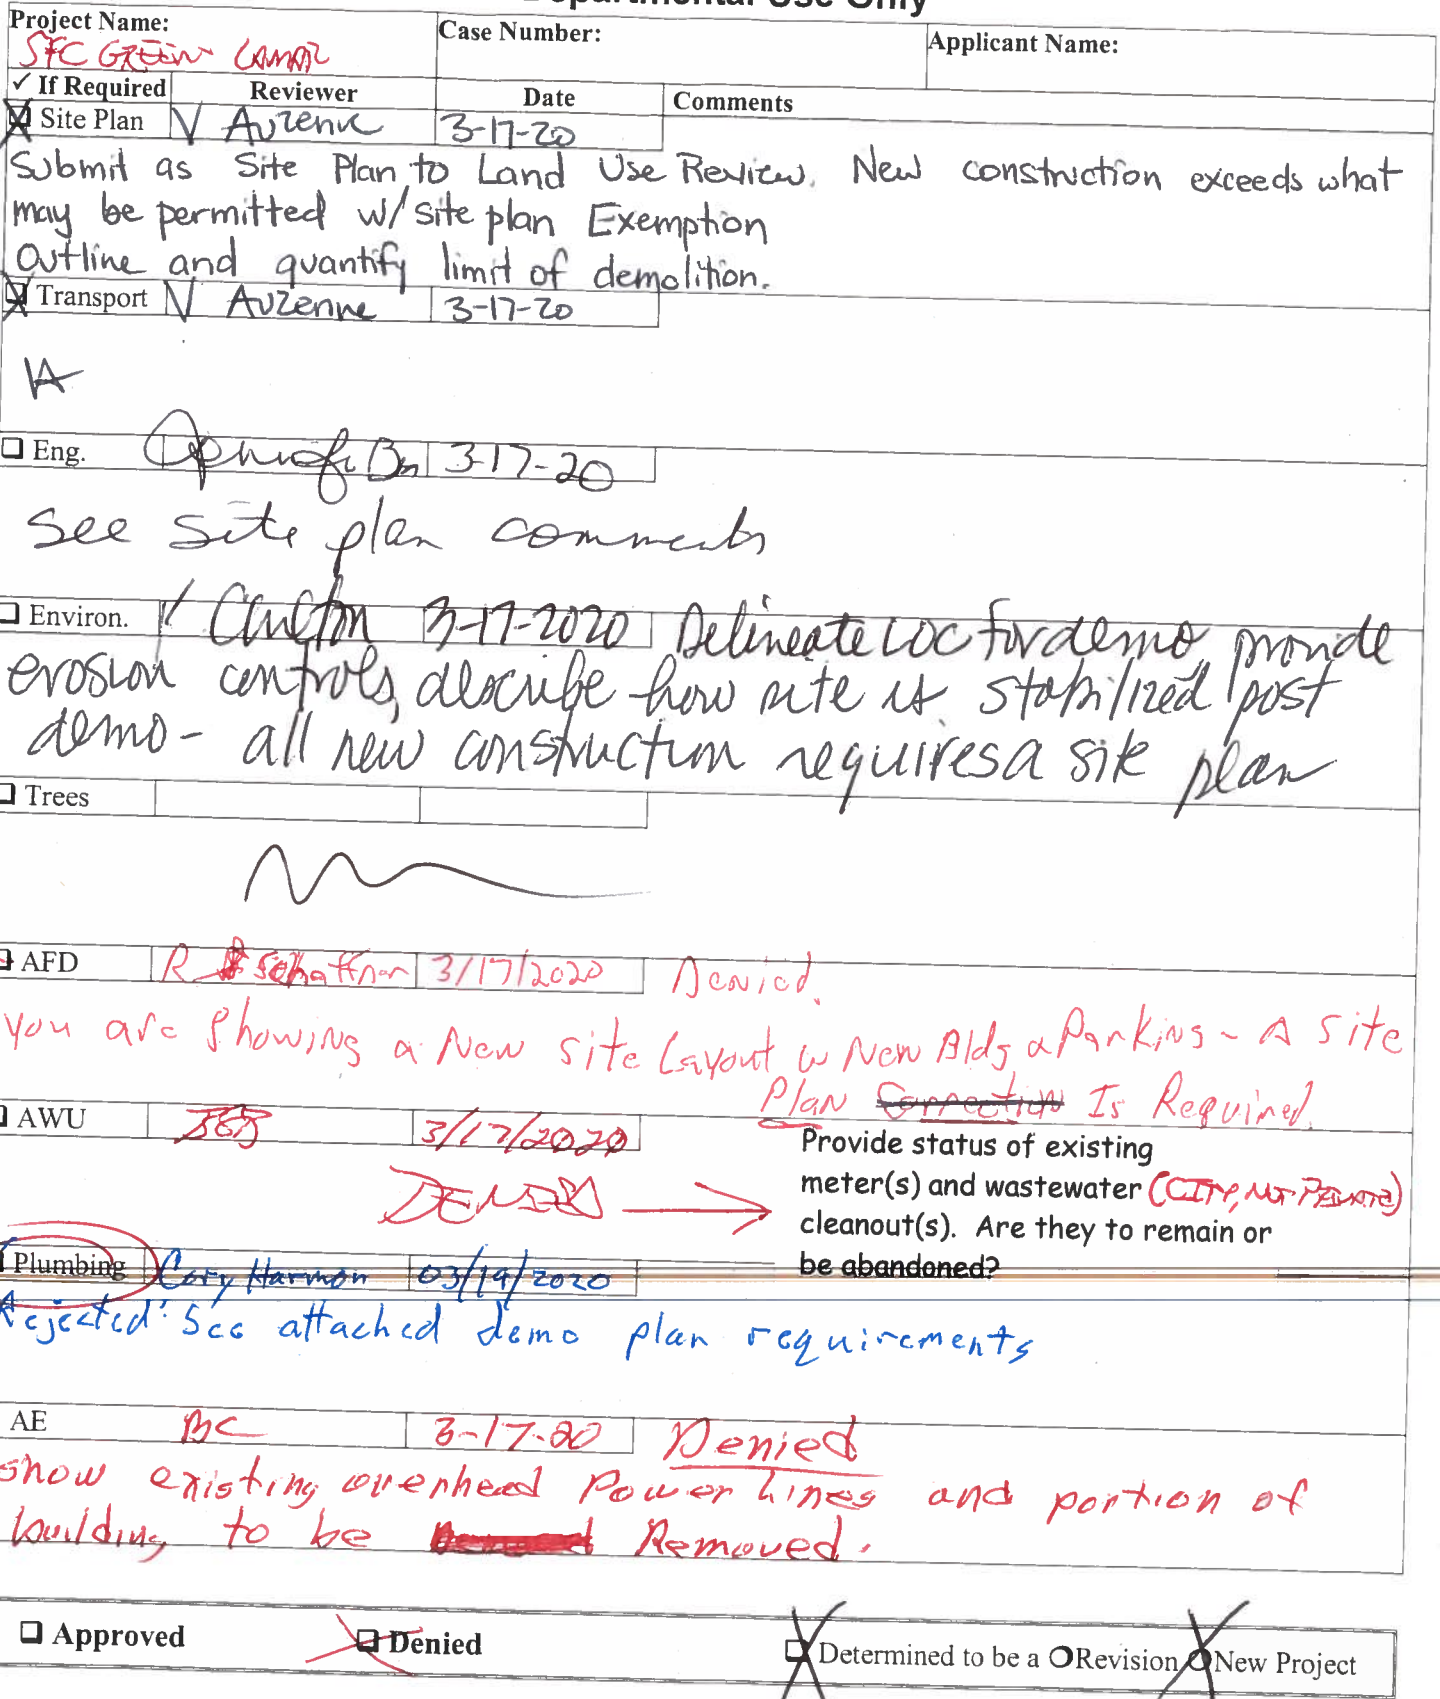 Departmental Use Only
Project Name:
Case Number:
Applicant Name:
SFC GREEN LAMAR
✓ If Required
Reviewer
Date
Comments
Site Plan
V Auzenne
3-17-20
Submit as Site Plan to Land Use Review. New construction exceeds what
may be permitted w/ site plan Exemption
Outline and quantify limit of demolition.
Transport
V Auzenne
3-17-20
Eng.
3-17-20
See site plan comments
Environ.
3-17-2020
Delineate LOC for demo, provide
erosion controls, describe how site is stabilized post
demo - all new construction requires a site plan
Trees
AFD
R Schaffner
3/17/2020
Denied.
You are showing a New site Layout w New Bldg & Parking - A site
Plan Correction Is Required.
AWU
3/17/2020
DENIED
Provide status of existing
meter(s) and wastewater (CITY, NOT PRIVATE)
cleanout(s). Are they to remain or
be abandoned?
Plumbing
Cory Harmon
03/19/2020
Rejected: See attached demo plan requirements
AE
BC
3-17-20
Denied
show existing overhead Power Lines and portion of
building to be Removed.
Approved
Denied
Determined to be a
Revision
New Project